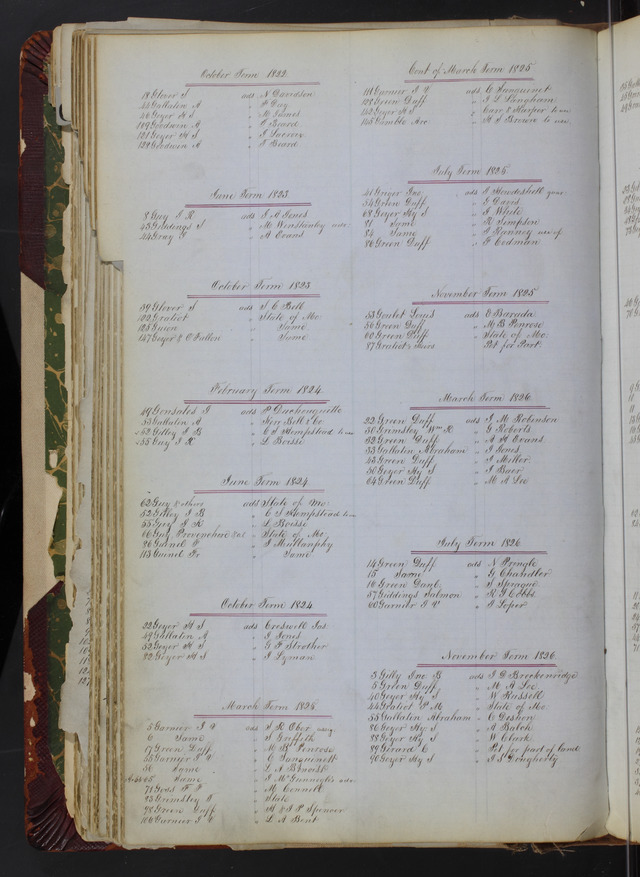 October Term 1822
18 Glover J ads N Davidson
44 Gallatin A " J Day
46 Geyer H S " M James
119 Goodwin A " J Beard
121 Geyer H S " J
122 Goodwin A " J Beard
June Term 1823
8 Guy J R ads J A Jones
43 Giddings S " M Winstanley adr
44 Gray J " A Evans
October Term 1823
39 Glover J ads J C Bell
122 Gratiot " State of Mo
125 " Same
147 Geyer & O'Fallon " Same
February Term 1824
49 Gonsales J ads P Duchouquette
53 Gallatin A " Kerr Bell & Co
52 Gilley J B " C S Hempstead to use
55 Guy J R " L Boisse
June Term 1824
62 Guy & others ads State of Mo
52 Gilley J B " C S Hempstead to
55 Guy J R " L Boisse
66 Guy Provenchere " State of Mo
96 Guinel F " J Mullanphy
113 Guinel Fr " Same
October Term 1824
22 Geyer H S ads Creswell Jas
49 Gallatin A " J Jones
52 Geyer H S " G F Strother
82 Geyer H S " J Lyman
March Term 1825
5 Garnier J V ads S R Ober
6 Same " J
17 Green Duff " M B Penrose
55 Garnier J V " C Sanguenett
56 Same " L A Benoist
65 Same " J McGunnegle adr
71 F P " M Connett
93 Grimsley T " State
98 Green Duff " H & J P Spencer
106 Garnier J V " L A Bent
Cont of March Term 1825
111 Garnier J V ads C Sanguenet
122 Green Duff " J L Langham
142 Geyer H S " Carr & Harper to use
145 Gamble Arc " H S Brown to use
July Term 1825
41 Geiger Jno ads J Stewdesbell
54 Green Duff " E Davis
68 Geyer Hy S " J White
81 Same " R Simpson
84 Same " J Ranney use of
86 Green Duff " G Codman
November Term 1825
53 Goulet Louis ads E Barada
56 Green Duff " M B Penrose
60 Green Duff " State of Mo
87 Gratiot's heirs Pet for Part
March Term 1826
22 Green Duff ads J M Robinson
30 Grimsley Wm R " G Roberts
32 Green Duff " A H Evans
33 Gallatin Abraham " J Jones
43 Green Duff " J Miller
50 Geyer Hy S " J Baer
64 Green Duff " M A Lee
July Term 1826
14 Green Duff ads N Pringle
15 Same " G Chandler
16 Green Danl " J Sprague
57 Giddings Salmon " R G Cobbs
60 Garnier J V " J Loper
November Term 1826
3 Gilly Jno B ads J D Breckenridge
5 Green Duff " M A Lee
40 Geyer Hy S " W Russell
44 Gratiot P M " State of Mo
55 Gallatin Abraham " C Deshon
86 Geyer Hy S " A Balch
88 Geyer Hy S " W Clark
89 Gerard C " Pet for part of land
90 Geyer Hy S " J S Dougherty